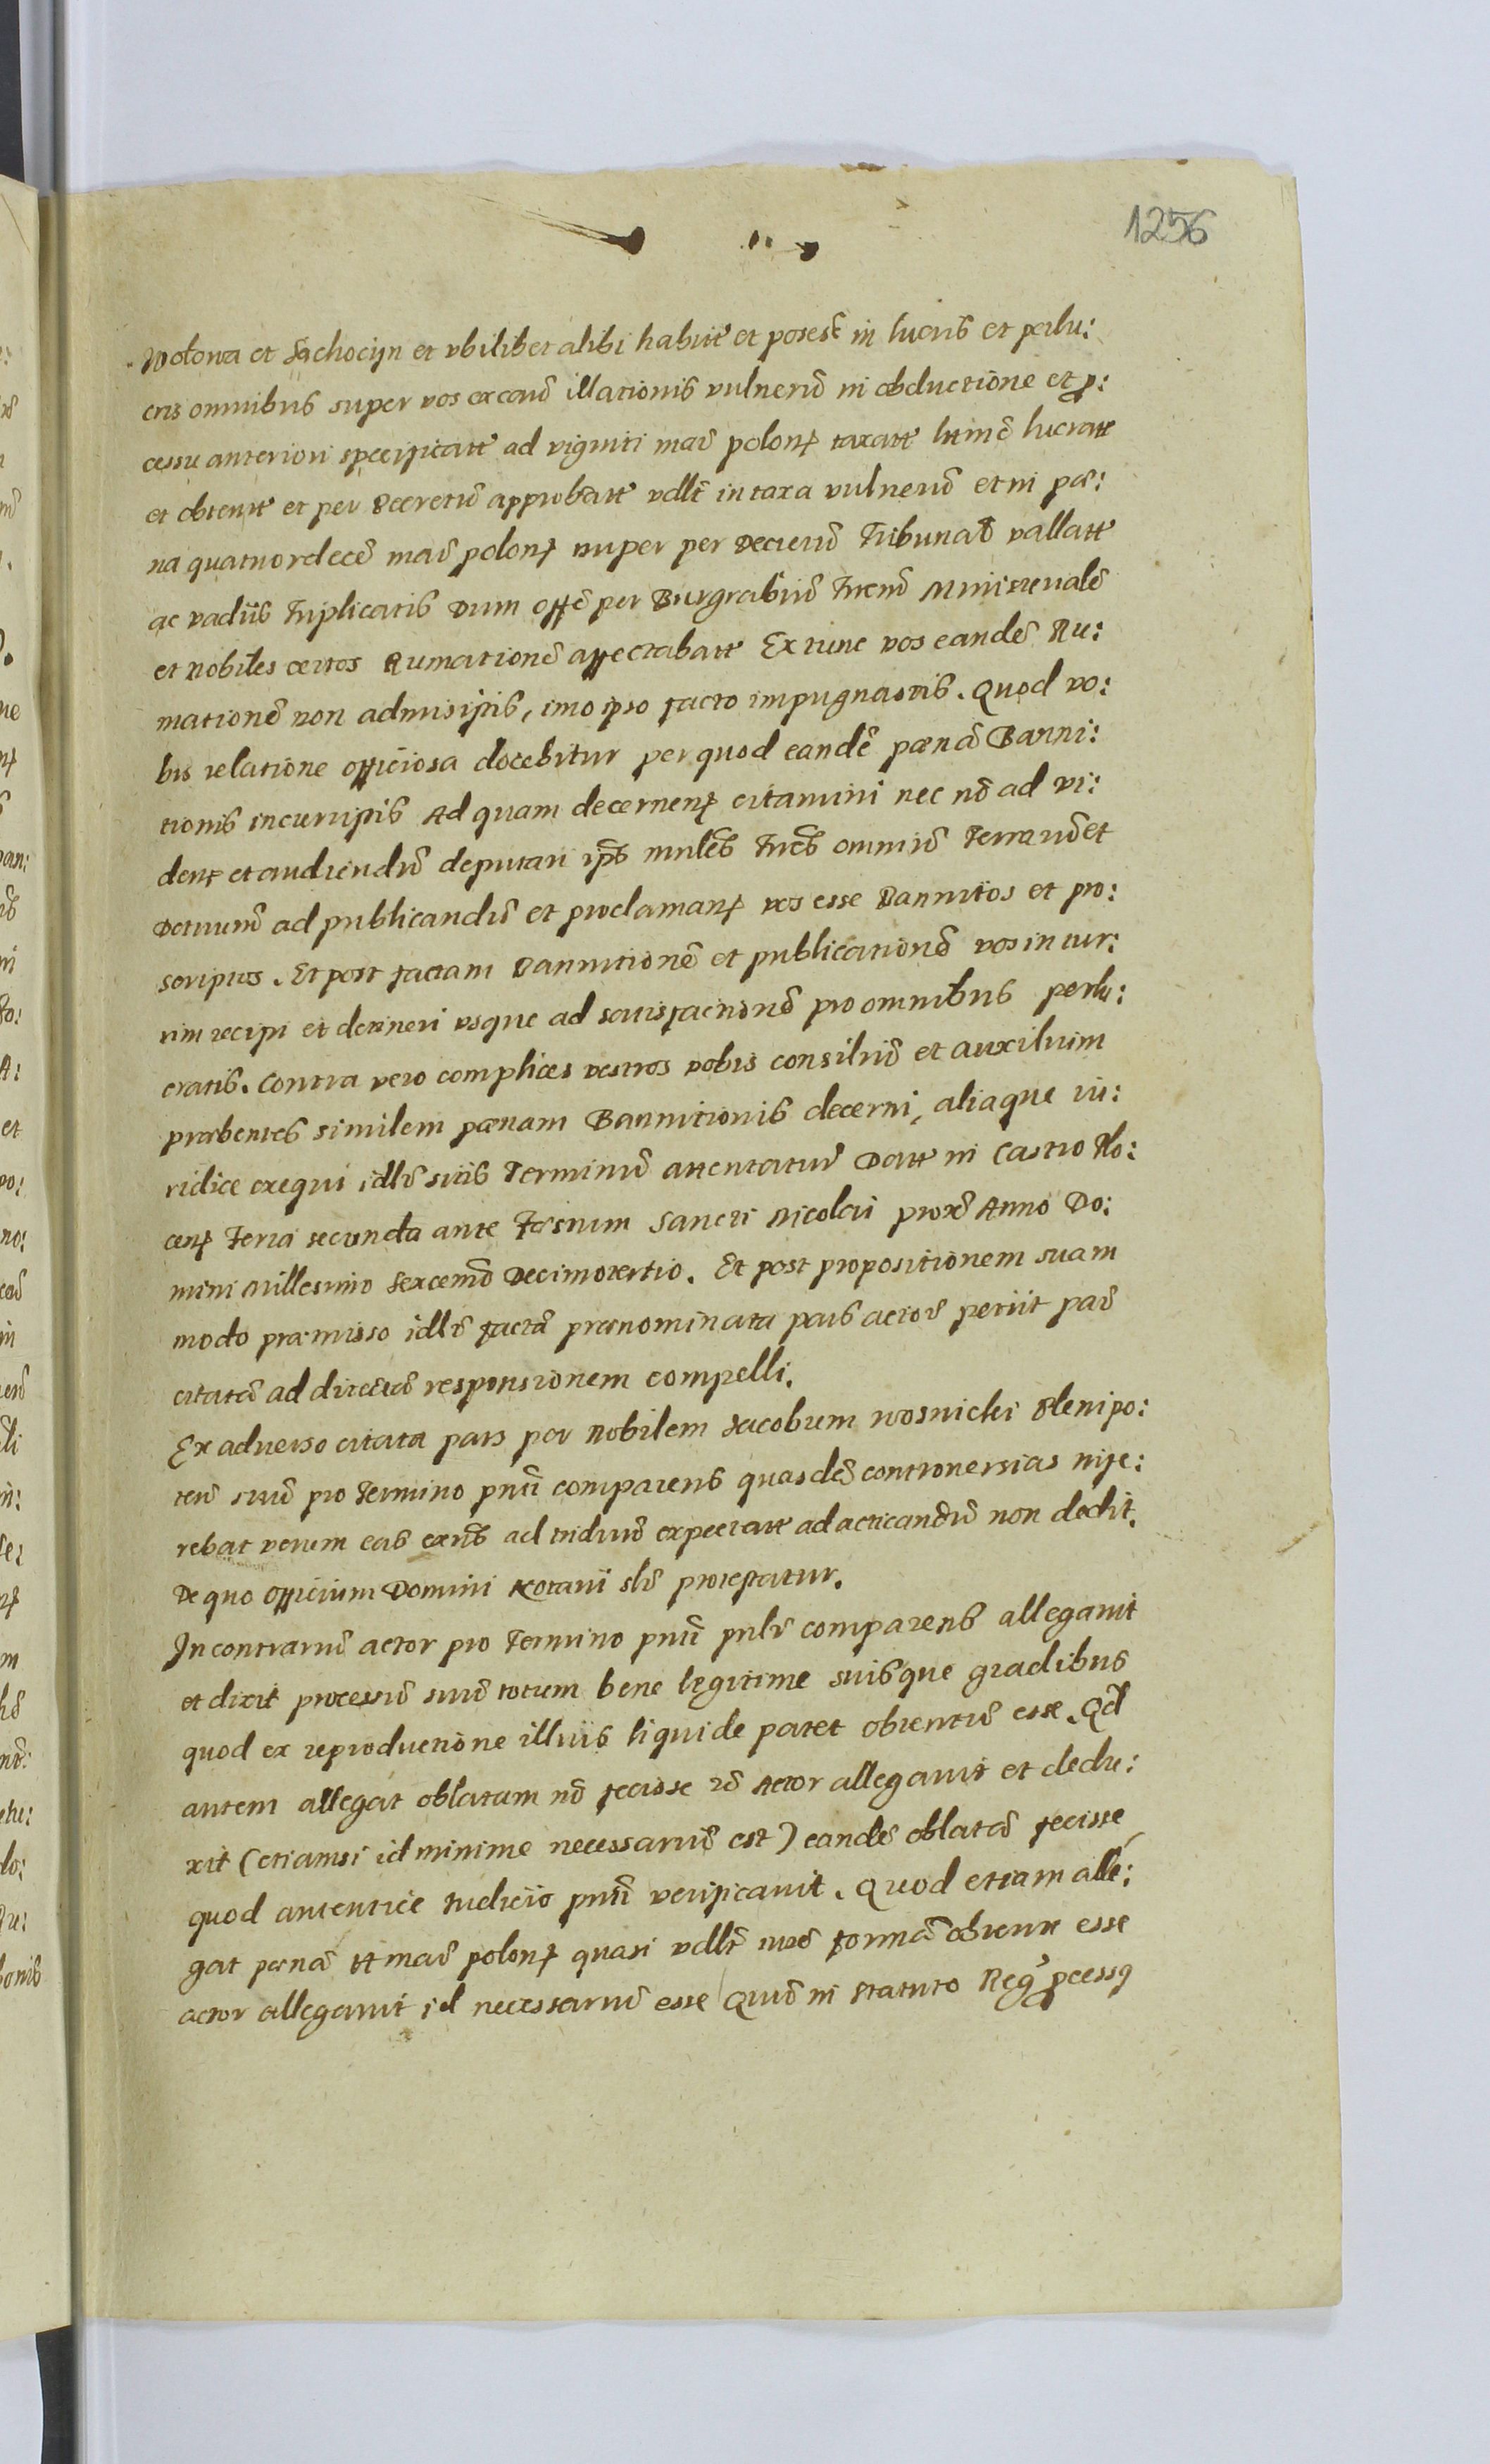 1256
Wolowa et Sachocijn et vbilibet alibi habitt et posess in lucris et perlu:
cris omnibus super vos ex caus illationis vulnerũ in obductione et p:
cessu anteriori specificatt ad viginti mar̃ polonꝭ taxatt litimẽ lucratt
et obtentt et per Decretũ approbatt vdlt in taxa vulnerũ et in pœ:
na quatuordecẽ mar̃ polonꝭ nuper per Decretũ Tribunal̃ vallatt
ac vadiis triplicatis Dum offẽ per Burgrabiũ Trem̃ Ministerialẽ
et Nobiles certos Rumationẽ affectabatt Extunc vos eandẽ Ru:
mationẽ non admisistis, imo ipso facto impugnastis. Quod vo:
bis relatione officiosa docebitur per quod eandẽ pœnã Banni:
tionis incurristis Ad quam decernenꝭ citamini nec nõ ad vi:
denꝭ et audiendũ deputari ipõs mnlẽs Trẽs omniũ Terrarũ et
Districtuũ ad publicandũ et proclamanꝭ vos esse Bannitos et pro:
scriptos. Et post factam Bannitionẽ et publicationẽ vos in cur:
rim recipi et detineri vsque ad satisfactionẽ pro omnibus perlu:
cratis. Contra vero complices vestros vobis consiliũ et auxilium
præbentes similem pœnam Bannitionis decerni, aliaque iu:
ridice exequi idlr̃ sitis Terminũ attentaturi Datt in Castro Plo:
cenꝭ Feria secunda ante Festum Sancti Nicolai proxẽ Anno Do:
mini Millesimo Sexcentõ Decimotertio. Et post propositionem suam
modo præmisso idlr̃ factã prænominata pars actor̃ petiit par̃
citatã ad directã responsionem compelli.
Ex aduerso citata pars per Nobilem Jacobum Wosnicki Plenipo:
tenẽ suũ pro Termino pnti comparens quasdẽ controuersias infe:
rebat verum eas extũs ad triduũ expectatt ad acticandũ non dedit.
De quo Officium Domini Notarii slr̃ protestatur.
In contrariũ actor pro Termino pnti pnlr̃ comparens allegauit
et dixit processũ suũ totum bene legitime suisque gradibus
quod ex reproductione illius liquide patet obtentũ esse. Qd
autem allegat oblatam nõ fecisse iõ Actor allegauit et dedu:
xit (etiamsi id minime necessariũ est) eandẽ oblatã fecisse
quod autentice Iudicio pnti verificauit. Quod etiam alle:
gat pœnã 14 mar̃ polonꝭ quasi vdlt iuxẽ formã obtentt esse
actor allegauit id necessariũ esse Quiũ in Statuto Regꝰ pcessꝰ